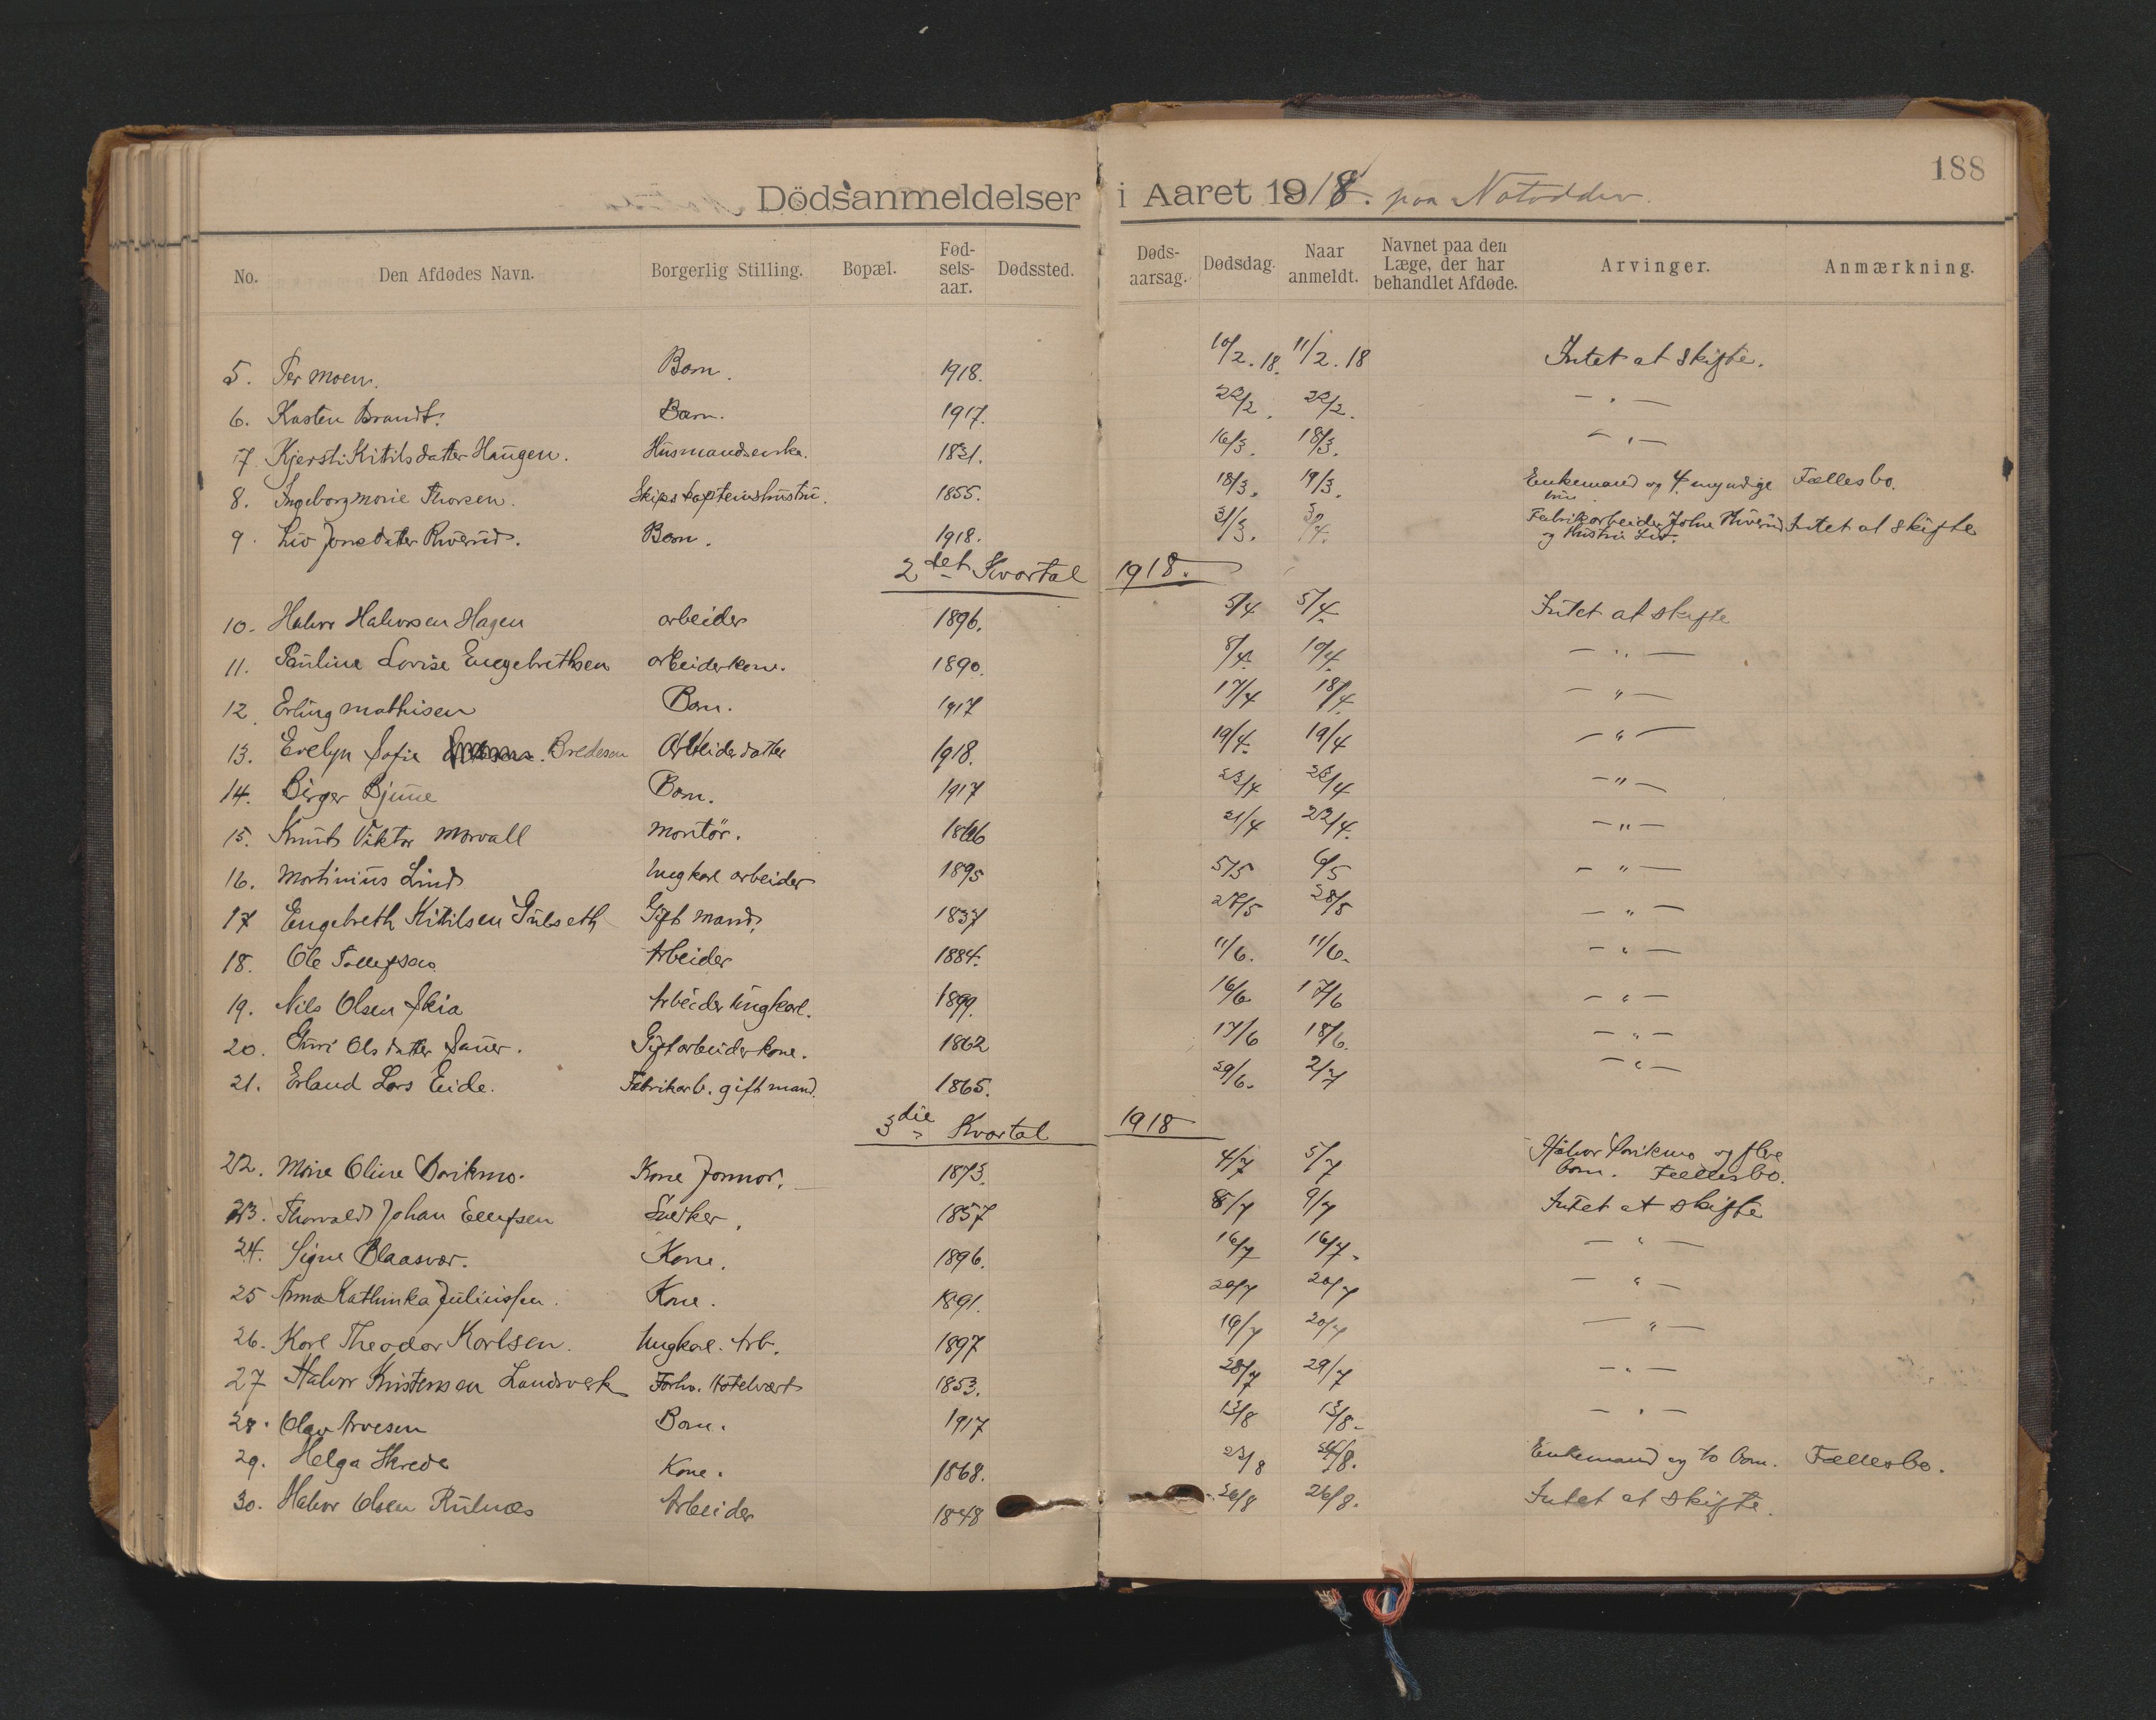 188
Dödsanmeldelser i Aaret 1918. paa Notodden.
No. Den Afdødes Navn. Borgerlig Stilling. Bopæl. Fødselsaar. Dødssted. Dødsaarsag. Dødsdag. Naar anmeldt. Navnet paa den Læge, der har behandlet Afdøde. Arvinger. Anmærkning.
5. Per Moen. Barn. 1918. 10/2.18. 11/2.18 Intet at skifte.
6. Kasten Brandt. Barn. 1917. 22/2. 22/2. — " —
7. Kjersti Kitilsdatter Haugen. Husmandsenke. 1831. 16/3. 18/3. — " —
8. Ingeborg Marie Thorsen. Skipskapteinshustru. 1855. 18/3. 19/3. Enkemand og 4 myndige børn. Fællesbo.
9. Liv Jonsdatter Ruverud. Barn. 1918. 31/3. 3/4. Fabrikarbeider John Ruverud og Hustru Liv. Intet at skifte
2det Kvartal 1918.
10. Halvor Halvorsen Hagen arbeider 1896. 5/4 5/4. Intet at skifte
11. Pauline Lovise Engebrethsen arbeiderkone. 1890. 8/4. 10/4. — " —
12. Erling Mathisen Barn. 1917 17/4 18/4. — " —
13. Evelyn Sofie Bredesen Arbeiderdatter 1918. 19/4. 19/4 — " —
14. Birger Bjune Barn. 1917 23/4 23/4 — " —
15. Knut Viktor Morvall Montör. 21/4 22/4. — " —
16. Martinius Lind Ungkarl arbeider 1895 5/5 6/5 — " —
17 Engebreth Kitilsen Gulseth Gift mand. 1837 27/5 28/5 — " —
18. Ole Tollefsen Arbeider 1884. 11/6. 11/6. — " —
19. Nils Olsen Skia Arbeider Ungkarl. 1899. 16/6 17/6 — " —
20. Guri Olsdatter Sauer. Gift arbeiderkone. 1862 17/6 18/6. — " —
21. Erland Lars Eide. Fabrikarb. gift mand. 1865. 29/6. 2/7 — " —
3die Kvartal 1918
22. Marie Oline Kone Jormor. 1873. 4/7 5/7 Halvor og flere barn. Fællesbo.
23. Thorvald Johan Ellefsen Snekker. 1857 8/7 9/7 Intet at skifte
24. Signe Blaasvær. Kone. 1896. 16/7 16/7. — " —
25 Anna Kathinka Juliussen. Kone. 1891. 20/7 20/7 — " —
26. Karl Theodor Karlsen. Ungkarl. Arb. 1897 19/7 20/7 — " —
27 Halvor Kristensen Landsverk Forhv. Hotelvært 1853. 28/7 29/7 — " —
28. Olav Arvesen Barn. 1917 13/8 13/8. — " —
29. Helga Skrede Kone. 1868. 23/8 24/8. Enkemand og to barn. Fællesbo.
30. Halvor Olsen Rulnæs Arbeider 1848 26/8 26/8. Intet at skifte.